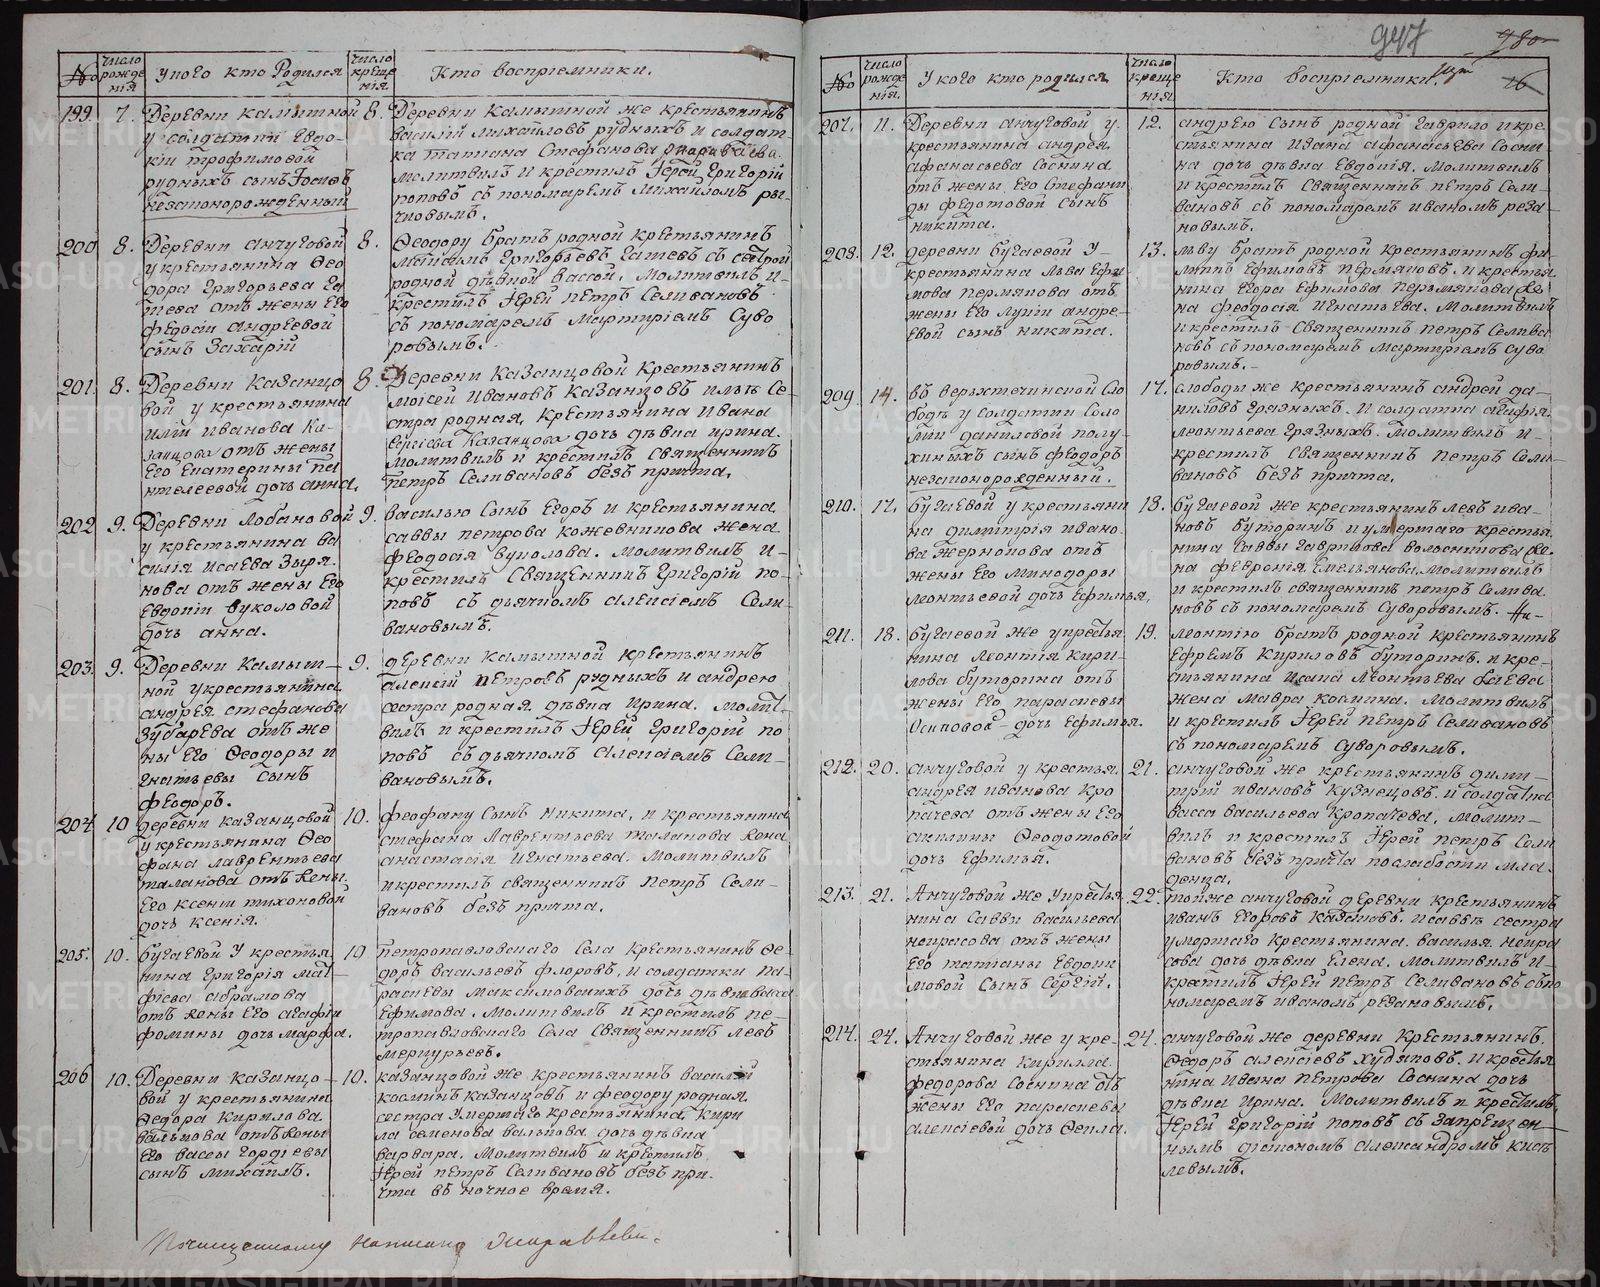 947
980
16
№ число рожде нія У кого кто Родился число креще нія Кто воспріемники.
199. 7. Деревни Камышной
у солдатки Евдо-
кіи трофимовой
рудныхъ сынъ Іосифъ
незаконорожденный
8. Деревни Камышной же крестьянинъ
василій михайловъ рудныхъ и солдат-
ка татиана Стефанова
молитвилъ и крестилъ Іерей григорій
поповъ съ пономаремъ михайломъ ры-
чковымъ.
200 8. Деревни анчуговой
у крестьянина Ѳео
дора григорьева га
тева отъ жены его
федосіи андреевой
сынъ Захарій
8. Ѳеодору братъ родной крестьянинъ
григорьевъ гатевъ съ сестрой
родной дѣвкой вассой. молитвилъ и-
крестилъ Іерей петръ Селивановъ
съ пономаремъ Мартиріемъ Суво
ровымъ.
201. 8. Деревни Казанцо
вой у крестьянина
иліи иванова Ка-
занцова отъ жены
его Екатерины па
нтелеевой дочь анна.
8. Деревни Казанцовой крестьянинъ
моисей ивановъ Казанцовъ ильѣ се-
стра родная, крестьянина ивана
Сергіева Казанцова дочь дѣвка ирина.
молитвилъ и крестилъ священникъ
петръ Селивановъ безъ причта.
202 9. Деревни Лобановой
у крестьянина ва
силія исаева Зыря-
нова отъ жены его
Евдокіи вуколовой
дочь анна.
9. василью сынъ Егоръ и крестьянина
саввы петрова кожевникова жена
феодосія вуколова. молитвилъ и-
крестилъ Священникъ григорій по-
повъ съ дьячкомъ алексіемъ Сели-
вановымъ.
203. 9. Деревни Камыш-
ной у крестьянина
андрея стефанова
Зубарева отъ же
ны его Ѳеодоры и
гнатьевы сынъ
феодоръ.
9. деревни Камышной крестьянинъ
алексій петровъ рудныхъ и андрею
сестра родная дѣвка ирина. молит-
вилъ и крестилъ Іерей григорій по
повъ съ дьячкомъ алексіемъ Сели-
вановымъ.
204 10 деревни Казанцовой
у крестьянина Ѳео
фана лаврентьева
таланова отъ жены
его ксеніи тихоновой
дочь ксенія.
10. феофану сынъ никита, и крестьянина
стефана лаврентьева таланова жена
анастасія игнатьева. молитвилъ
и крестилъ священникъ петръ Сели-
вановъ безъ причта.
205. 10. бугаевой у крестья
нина григорія мат-
фіева абрамова
отъ жены его агафіи
фомины дочь марфа.
10 петропавловскаго Села крестьянинъ Ѳе-
доръ васильевъ флоровъ, и солдатки па-
расковьи максимовскихъ дочь дѣвка васса
Ефимова. молитвилъ и крестилъ пе-
тропавловскаго Села священникъ левъ
меркурьевъ.
206 10. Деревни Казанцо-
вой у крестьянина
Ѳедора Кирилова
валькова отъ жены
его васы гордѣевы
сынъ михаилъ.
10. Казанцовой же крестьянинъ василій
косминъ казанцовъ и феодору родная
сестра умершаго крестьянина, кири
ла семенова валькова дочь дѣвка
варвара. молитвилъ и крестилъ
Іерей петръ Селивановъ безъ при-
чта въ ночное время.
№ число рожде нія. У кого кто родился число креще нія. Кто воспріемники.
207. 11. Деревни анчуговой у
крестьянина андрея
афанасьева Соснина
отъ жены его Стефани
ды федотовой сынъ
никита.
12. андрею сынъ родной гаврило и кре
стьянина ивана афанасьева Сосни
на дочь дѣвка Евдокія. молитвилъ
и крестилъ священникъ петръ Сели-
вановъ съ пономаремъ иваномъ реза-
новымъ.
208. 12. деревни бугаевой у
крестьянина льва ефи
мова пермякова отъ
жены его лукіи андре-
евой сынъ никита.
13. льву братъ родной крестьянинъ фи-
липъ ефимовъ пермяковъ, и крестья
нина Егора Ефимова пермякова же
на феодосія игнатьева. молитвилъ
и крестилъ священникъ петръ Селива
новъ съ пономаремъ мартиріемъ суво
ровымъ.-
209. 14. въ верьхтеченской Сло
бодѣ у солдатки Соло
міи даниловой полу-
хиныхъ сынъ феодоръ
незаконорожденный.
17. слободы же крестьянинъ андрей да-
ниловъ грязныхъ. и солдатка агафія
леонтьева грязныхъ. молитвилъ и-
крестилъ священникъ петръ Сели-
вановъ безъ причта.
210. 17. бугаевой у крестьяни
на димитрія ивано-
ва жернокова отъ
жены его минодоры
леонтьевой дочь Ефимья.
18. бугаевой же крестьянинъ левъ ива-
новъ буторинъ и умершаго крестья-
нина саввы гаврилова волосникова же-
на февронія Емельянова. молитвилъ
и крестилъ священникъ петръ Селива
новъ съ пономаремъ Суворовымъ.
211. 18. бугаевой же у крестья
нина леонтія кири-
лова буторина отъ
жены его парасковьи
Осиповой - дочь Ефимья.
19. леонтію братъ родной крестьянинъ
ефремъ кириловъ буторинъ. и кре-
стьянина исака леонтьева фаева
жена мавра космина. молитвилъ
и крестилъ Іерей петръ Селивановъ
съ пономаремъ Суворовымъ.
212. 20. анчуговой у крестья
андрея иванова кро
пачева отъ жены его
акилины Ѳеодотовой
дочь Ефимья.
21. анчуговой же крестьянинъ дими-
трій ивановъ кузнецовъ. и солдатка
васса васильева кропачева. молит-
вилъ и крестилъ Іерей петръ Сели
вановъ безъ причта по слабости мла
денца.
213. 21. Анчуговой же у крестья
нина саввы васильева
некрасова отъ жены
его татіаны Евдоки
мовой сынъ Сергій.
22. той же анчуговой деревни крестьянинъ
иванъ Егоровъ казаковъ. и саввѣ сестра
умершаго крестьянина. василья некра
сова дочь дѣвка Елена. молитвилъ и-
крестилъ Іерей петръ Селивановъ съ по
номаремъ иваномъ резановымъ.
214. 24. Анчуговой же у кре-
стьянина кирилла
федорова Соснина отъ
жены его парасковьи
алексіевой дочь Ѳекла.
24. анчуговой же деревни крестьянинъ
Ѳедоръ алексіевъ худяковъ. и крестья
нина ивана петрова Соснина дочь
дѣвка ирина. молитвилъ и крестилъ
Іерей григорій поповъ съ запрещен-
нымъ діакономъ александромъ кисе
левымъ.
По чищенному написано
METRIKI.GASO-URAL.RU